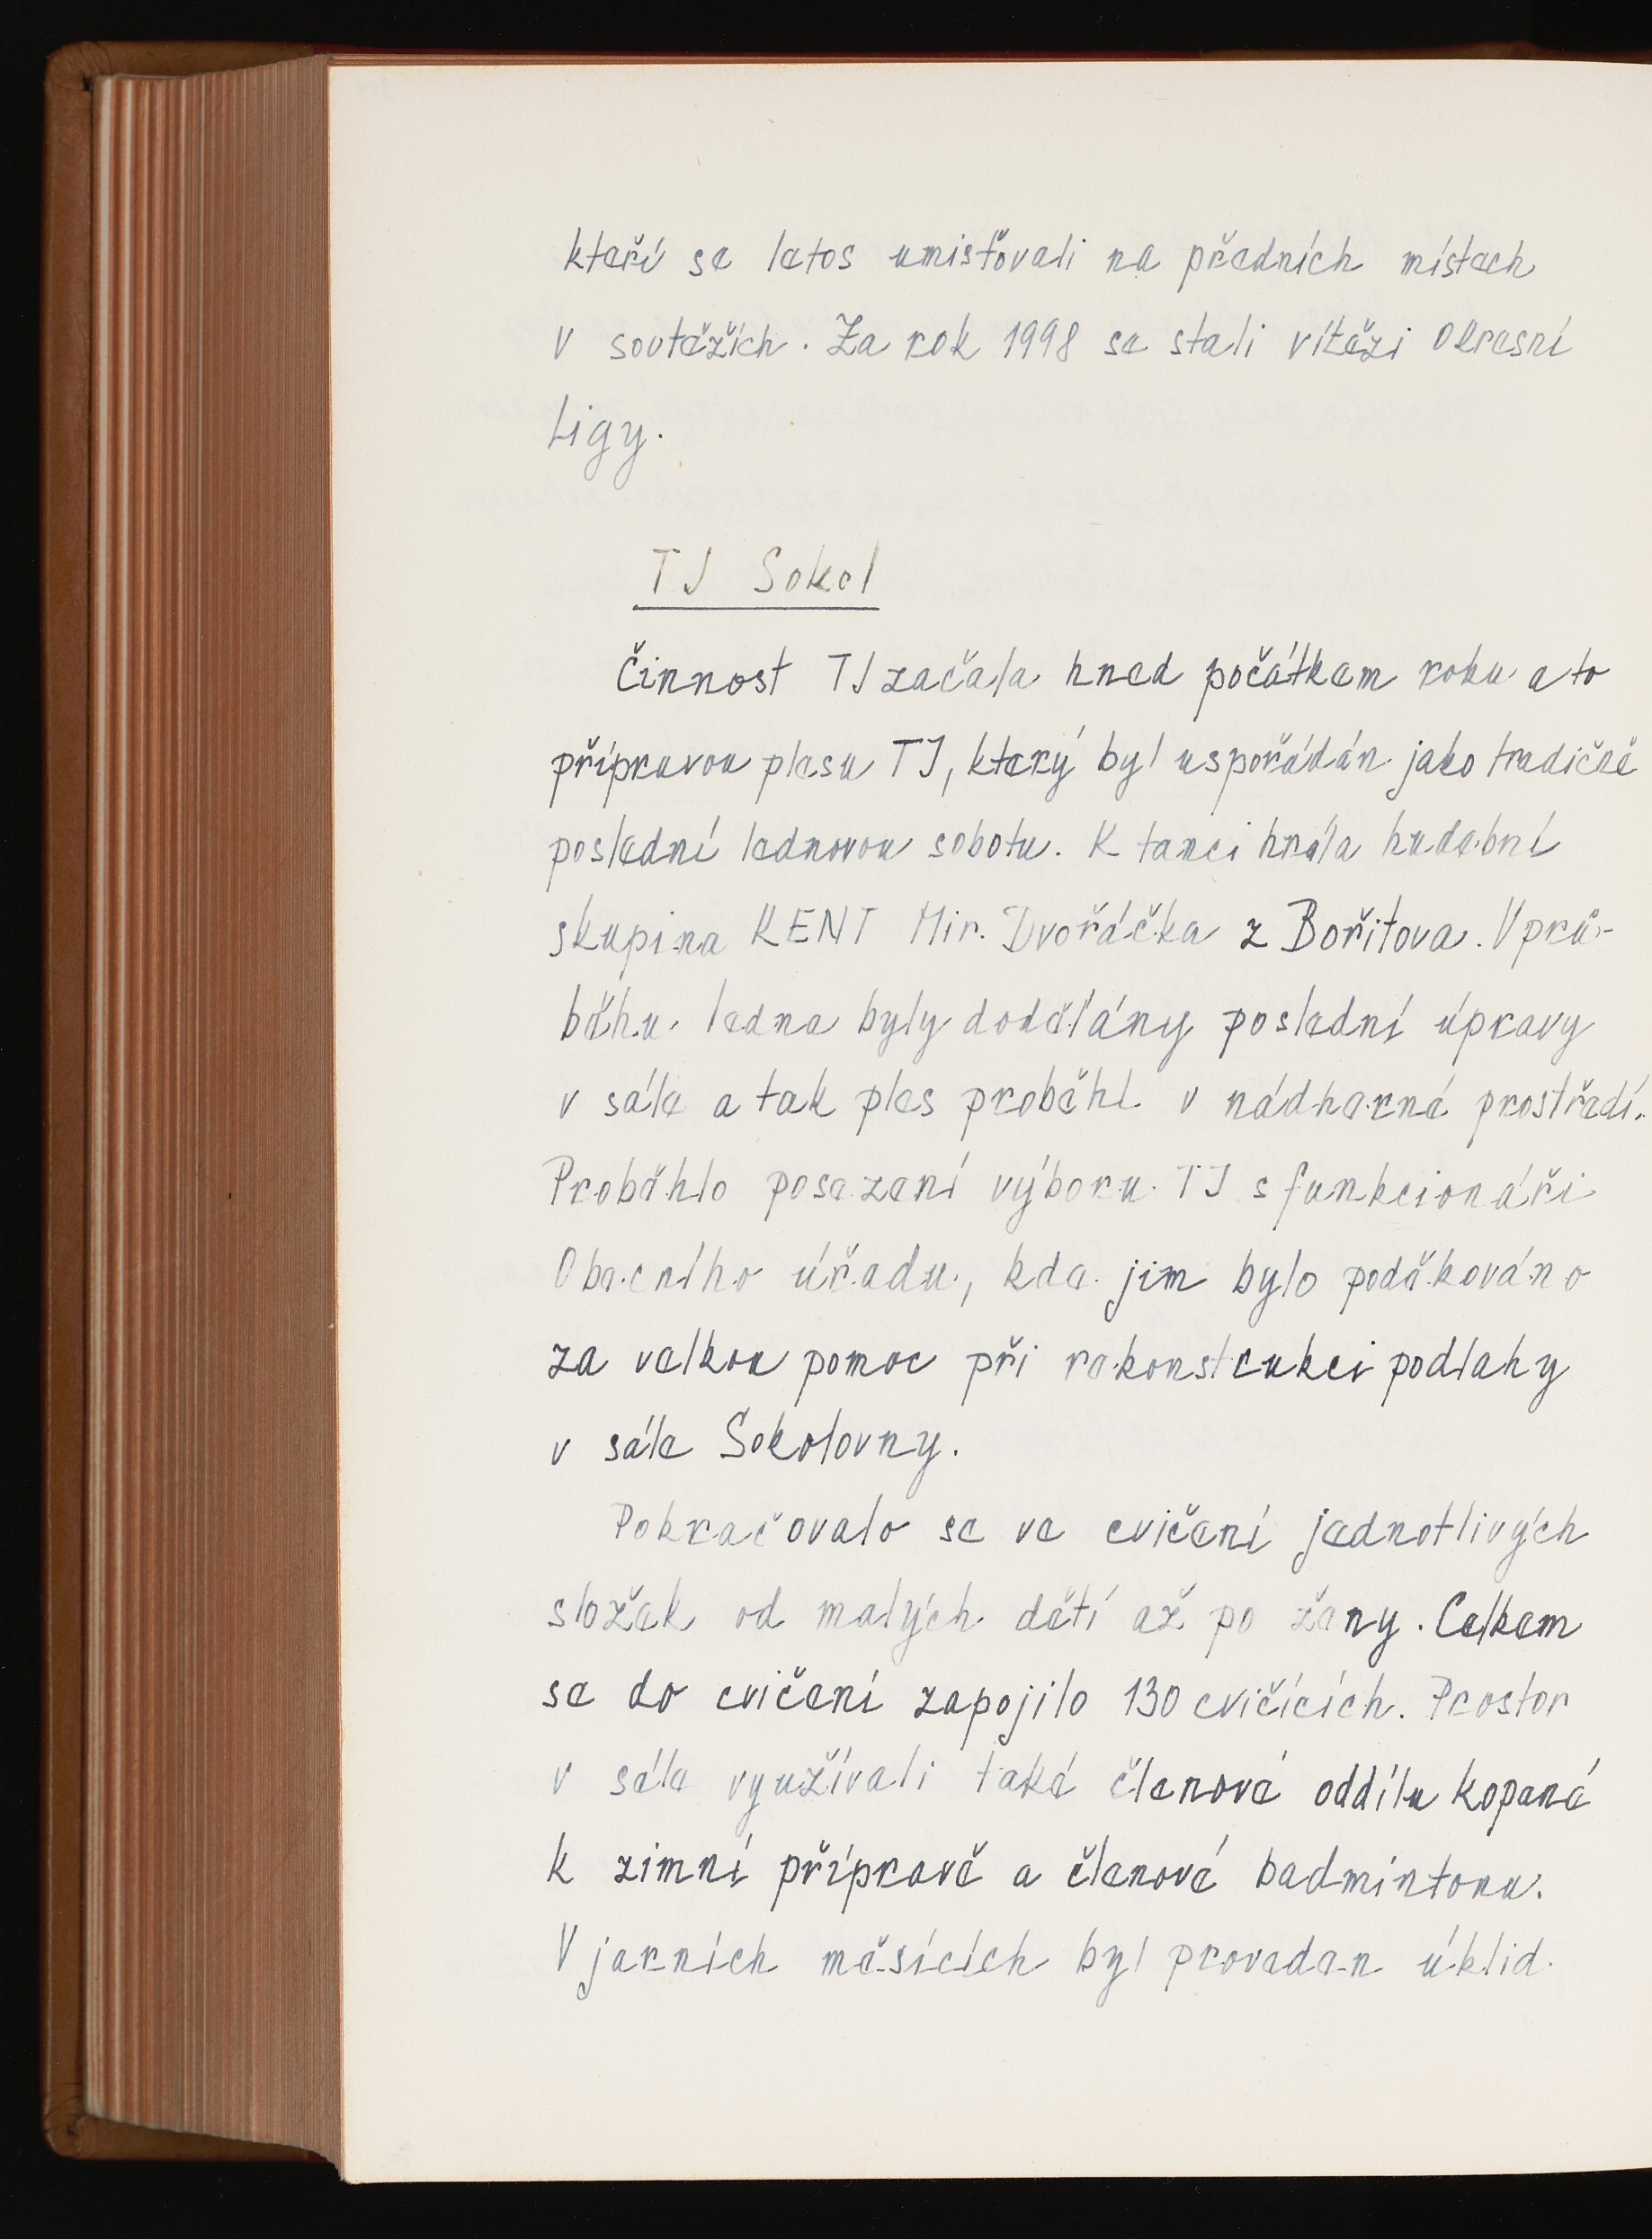 kteří se letos umisťovali na předních místech
v soutěžích. Za rok 1998 se stali vítězi Okresní
Ligy.
TJ Sokol
Činnost TJ začala hned počátkem roku a to
přípravou plesu TJ, který byl uspořádán jako tradičně
poslední lednovou sobotu. K tanci hrála hudební
skupina KENT Mir. Dvořáčka z Bořitova. V prů-
běhu ledna byly dodělány poslední úpravy
v sále a tak ples proběhl v nádherné prostředí.
Proběhlo posezení výboru TJ s funkcionáři
Obecního úřadu, kde jim bylo poděkováno
za velkou pomoc při rekonstrukci podlahy
v sále Sokolovny.
Pokračovalo se ve cvičení jednotlivých
složek od malých dětí až po ženy. Celkem
se do cvičení zapojilo 130 cvičících. Prostor
v sále využívali také členové oddílu kopané
k zimní přípravě a členové badmintonu.
V jarních měsících byl proveden úklid